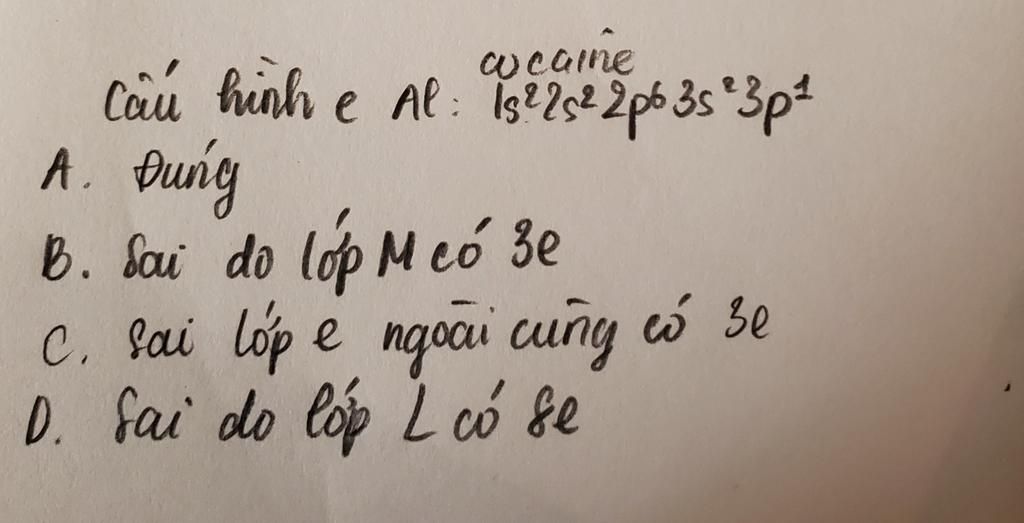 cocaine
Cấu hình e Al: 1s²2s²2p⁶3s²3p¹
A. Đúng
B. Sai do lớp M có 3e
C. Sai lớp e ngoài cùng có 3e
D. Sai do lớp L có 8e